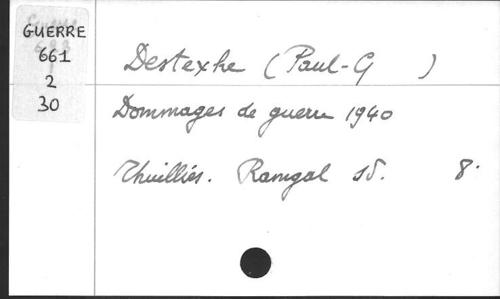 GUERRE
661
2
30
Destexhe (Paul-G )
Dommages de guerre 1940
Thuilliés. Ramgal sd. 8°